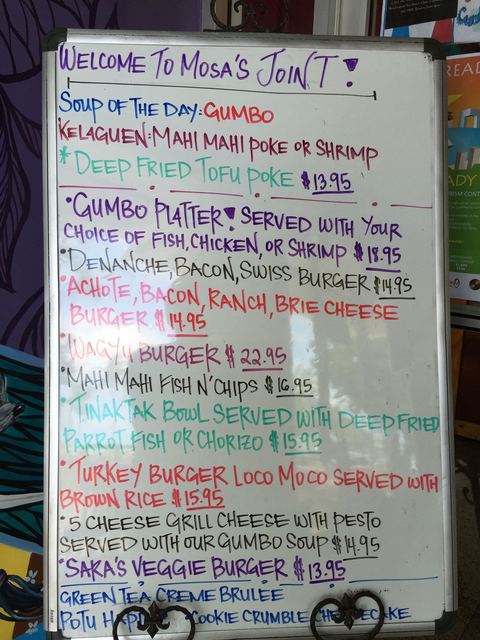 WELCOME TO MOSA'S JOINT!
SOUP OF THE DAY: GUMBO
KELAGUEN: MAHI MAHI POKE OR SHRIMP
* DEEP FRIED TOFU POKE $13.95
•GUMBO PLATTER! SERVED WITH YOUR
CHOICE OF FISH, CHICKEN, OR SHRIMP $18.95
•DENANCHE, BACON, SWISS BURGER $14.95
•ACHOTE, BACON, RANCH, BRIE CHEESE
BURGER $14.95
•WAGYU BURGER $22.95
•MAHI MAHI FISH N' CHIPS $16.95
•TINAKTAK BOWL SERVED WITH DEEP FRIED
PARROT FISH OR CHORIZO $15.95
•TURKEY BURGER LOCO MOCO SERVED WITH
BROWN RICE $15.95
•5 CHEESE GRILL CHEESE WITH PESTO
SERVED WITH OUR GUMBO SOUP $14.95
•SARA'S VEGGIE BURGER $13.95
GREEN TEA CREME BRULEE
POTU COOKIE CRUMBLE
READ
ADY